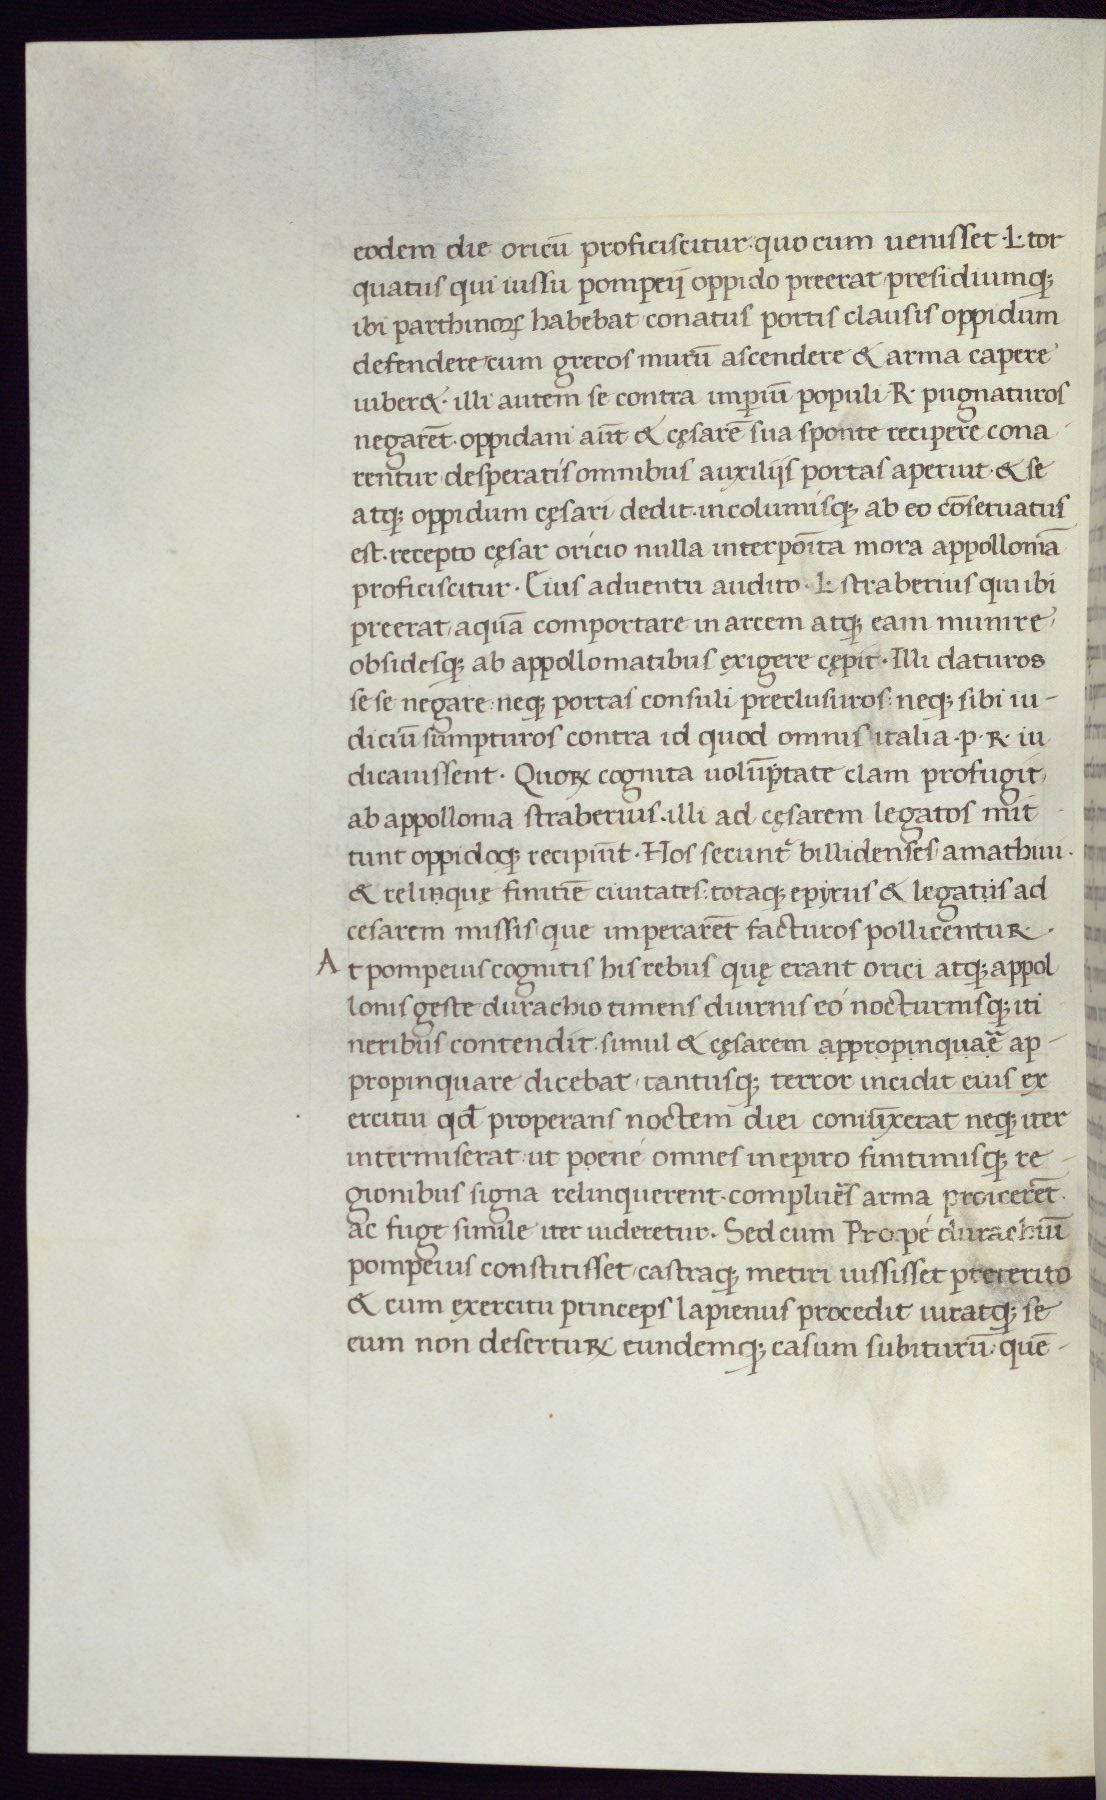 eodem die oricū proficiscitur·quo cum uenisset·L·tor
quatus qui iussu pompeij oppido preerat presidiumq;
ibi parthinoꝝ habebat conatus portis clausis oppidum
defendere cum grecos murū ascendere & arma capere
iuber&· illi autem se contra imperiū populi·R· pugnaturos
negarēt·oppidani aūt & cęsarē sua sponte recipere cona
rentur desperatis omnibus auxilijs portas aperuit·& se
atq; oppidum cęsari dedit·incolumisq; ab eo cōseruatus
est·recepto cęsar oricio nulla interpoīta mora appolloniā
proficiscitur· Eius aduentu audito·L· straberius qui ibi
preerat aquā comportare in arcem atq; eam munire
obsidesq; ab appollomatibus exigere cępit· Illi daturos
se se negare·neq; portas consuli preclusuros: neq; sibi iu-
diciū sumpturos contra id quod omnis italia·p·R· iu
dicauissent· Quoꝝ cognita volūptate clam profugit
ab appollonia straberius·illi ad cęsarem legatos mit
tunt oppidoq; recipiūt·Hos secunt᷑ billidenses amathini·
& relinquę finitiē ciuitates·totaq; epyrus & legatiis ad
cesarem missis que imperarēt facturos pollicentuR·
At pompeius cognitis his rebus quę erant orici atq; appol
lonis geste durachio timens diurnis eó nocturnisq; iti
neribus contendit·simul & cęsarem appropinquar̄e ap-
propinquare dicebat·tantusq; terror incidit eius ex
ercitui qđ properans noctem diei coniūxerat neq; iter
intermiserat·ut poene omnes in epiro finitimisq; re-
gionibus signa relinquerent·complur̄es arma proicerēt·
ac fuge simile iter uideretur· Sed cum Prope durachiū
pompeius constitisset castraq; metiri iussisset preterito
& cum exercitu princeps lapienus procedit iuratq; se
eum non deserturꝝ eundemq; casum subiturū·quē-